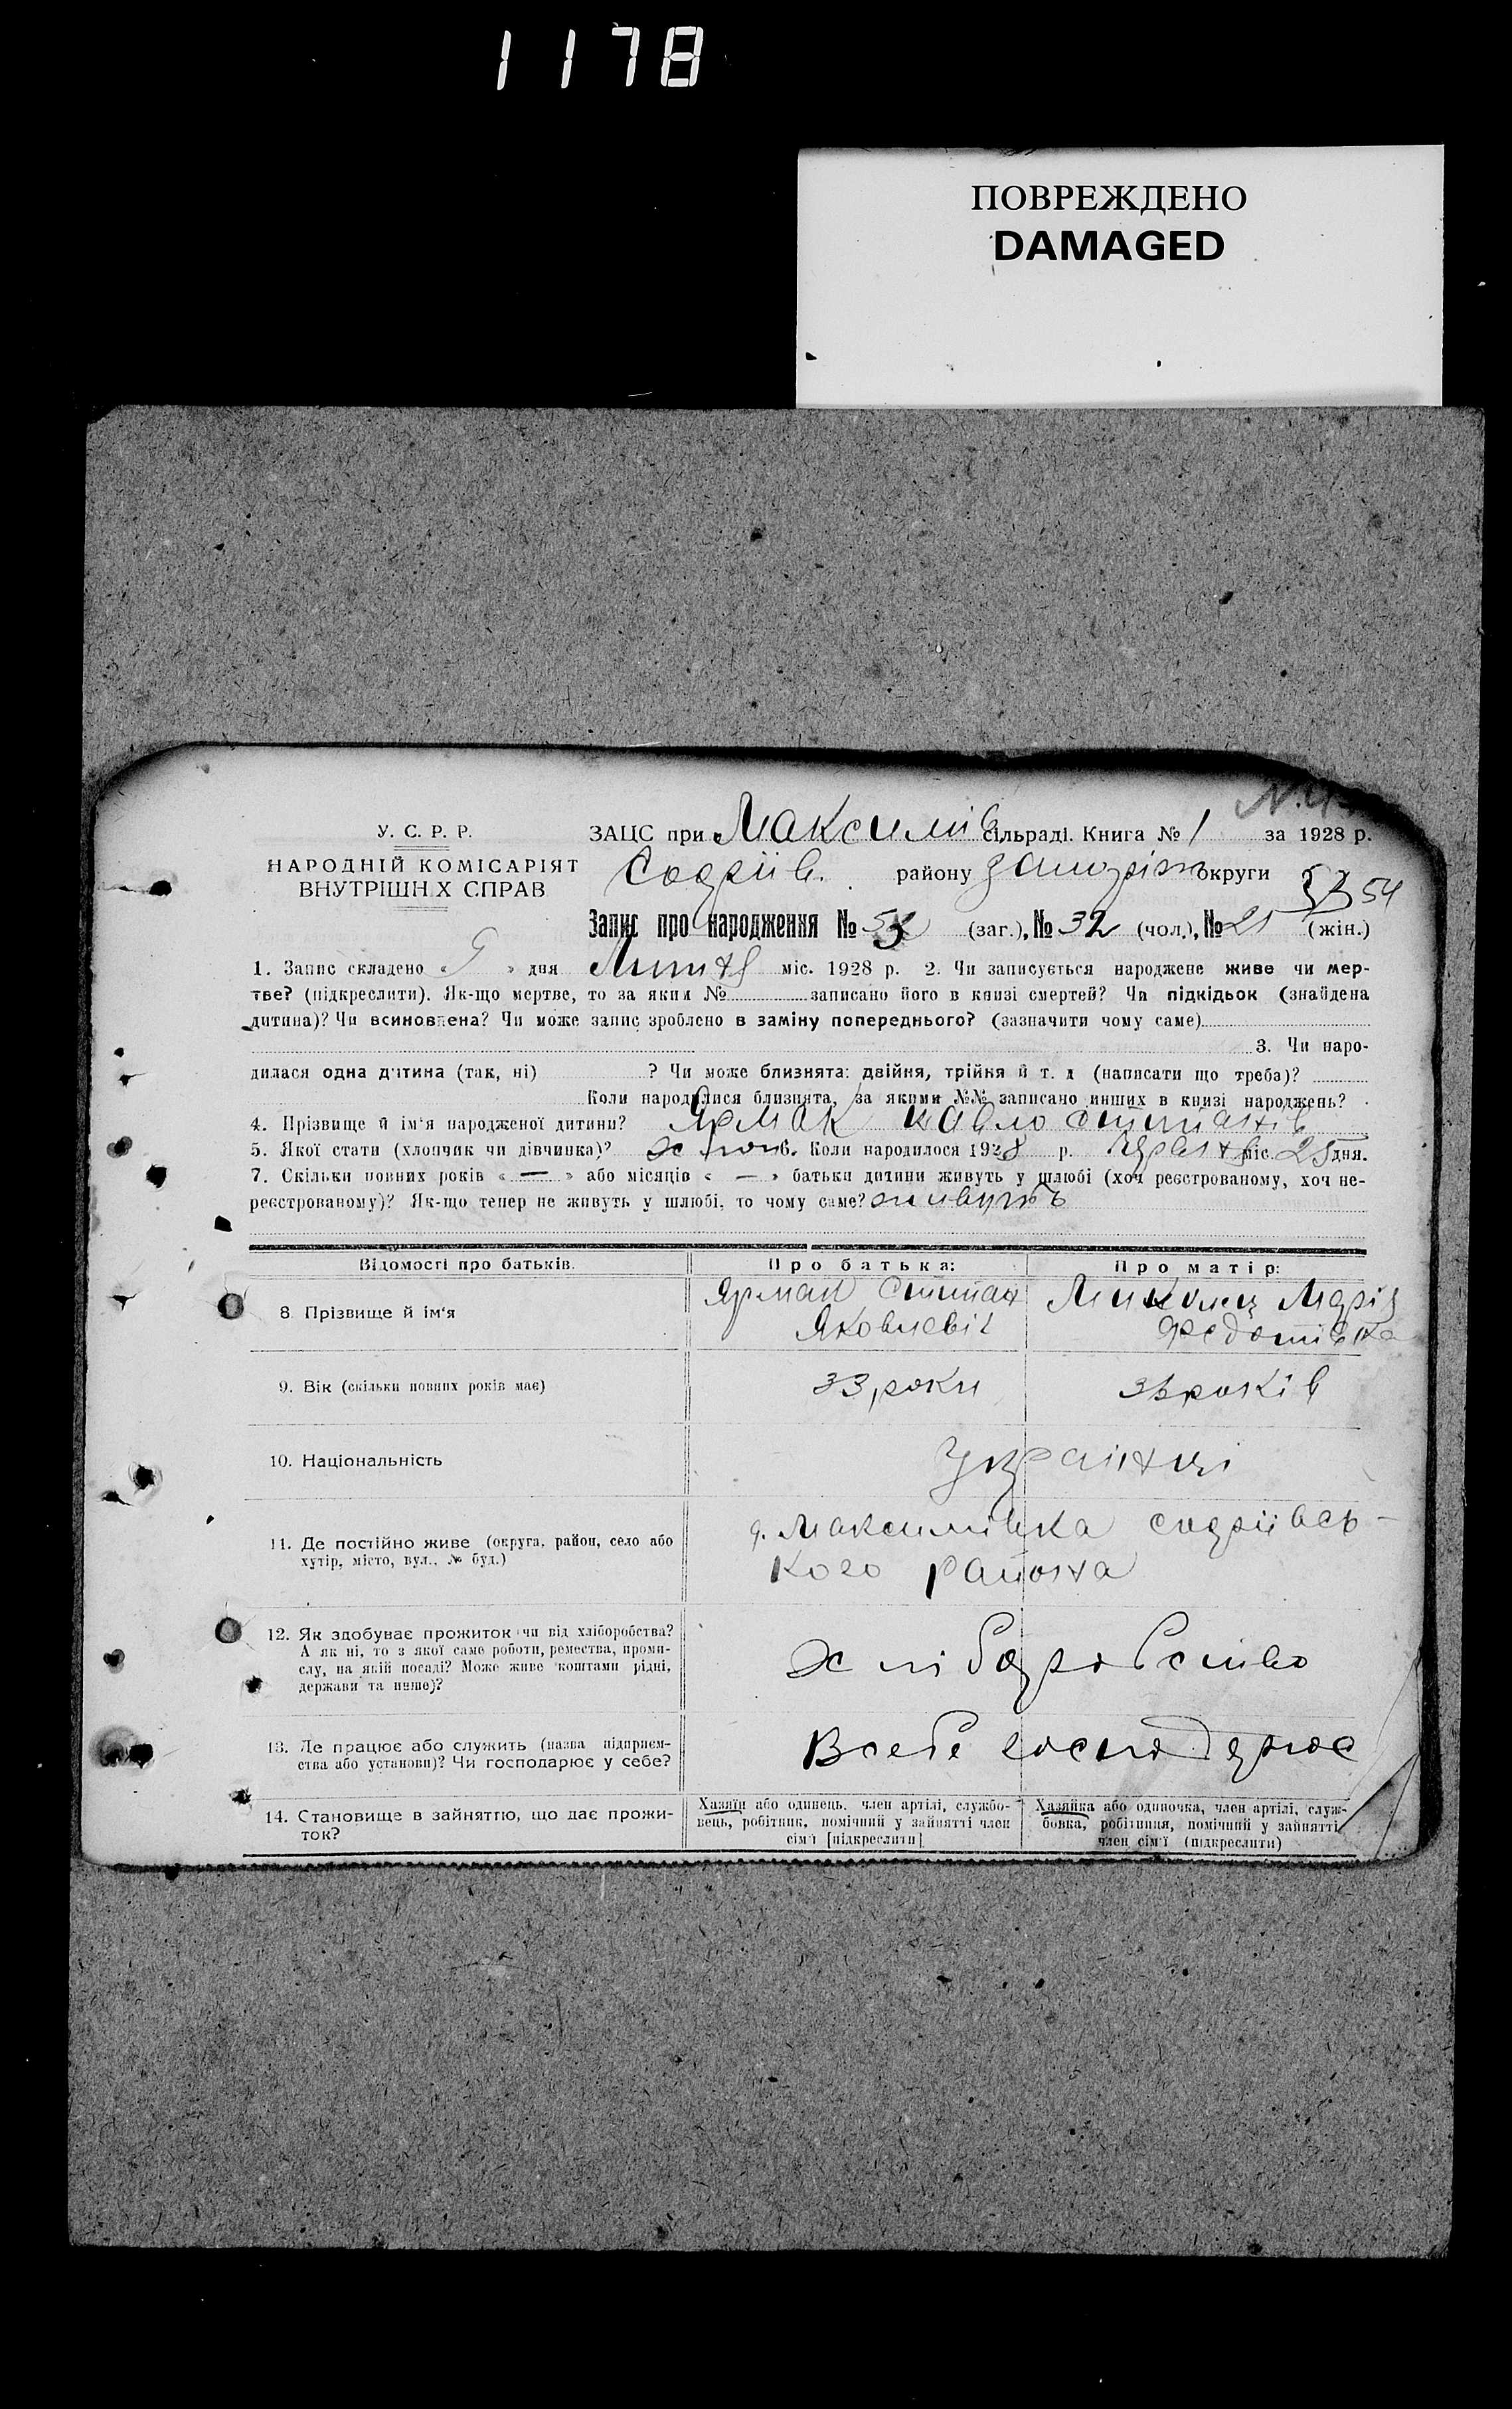 1178
ПОВРЕЖДЕНО
DAMAGED
У. С. Р. Р.
НАРОДНІЙ КОМІСАРІЯТ
ВНУТРІШНІХ СПРАВ
ЗАЦС при Максимів сільраді. Книга № 1 за 1928 р.
району округи
54
Запис про народження № (заг.), № 32 (чол.), № 21 (жін.)
1. Запис складено « » дня міс. 1928 р. 2. Чи записується народжене живе чи мер-
тве? (підкреслити). Як-що мертве, то за яким № записано його в книзі смертей? Чи підкідьок (знайдена
дитина)? Чи всиновлена? Чи може запис зроблено в заміну попереднього? (зазначити чому саме)
3. Чи наро-
дилася одна дитина (так, ні) ? Чи може близнята: двійня, трійня й т. д (написати що треба)?
Коли народилися близнята, за якими №№ записано инших в книзі народжень?
4. Прізвище й ім'я народженої дитини? Ярмак Павло
5. Якої стати (хлопчик чи дівчинка)? Коли народилося 1928 р. міс. 25 дня.
7. Скільки повних років « — » або місяців « — » батьки дитини живуть у шлюбі (хоч реєстрованому, хоч не-
реєстрованому)? Як-що тепер не живуть у шлюбі, то чому саме? живуть
Відомості про батьків. Про батька: Про матір:
8 Прізвище й ім'я Ярмак Степан Марія
Яковлевіч Федотівна
9. Вік (скільки повних років має) 33 роки років
10. Національність Українці
11. Де постійно живе (округа, район, село або
хутір, місто, вул., № буд.)
Максимівка
кого района
12. Як здобуває прожиток чи від хліборобства?
А як ні, то з якої саме роботи, ремества, проми-
слу, на якій посаді? Може живе коштами рідні,
держави та инше)?
хліборобство
13. Де працює або служить (назва підприєм-
ства або установи)? Чи господарює у себе?
Всебе господарює
14. Становище в зайняттю, що дає прожи-
ток?
Хазяїн або одинець, член артілі, службо-
вець, робітник, помічний у зайнятті член
сім'ї [підкреслити]
Хазяйка або одиночка, член артілі, служ-
бовка, робітниця, помічний у зайнятті
член сім'ї (підкреслити)